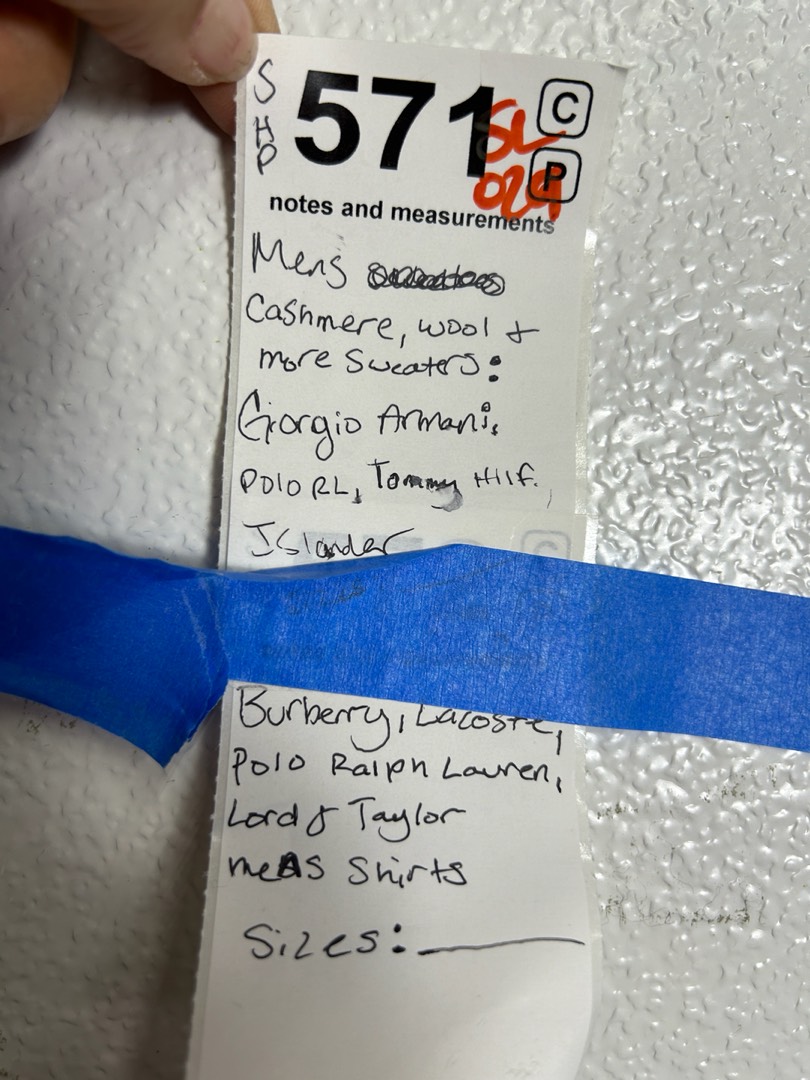 SHP
571
SL
029
C
P
notes and measurements
Mens
Cashmere, wool +
more Sweaters:
Giorgio Armani,
POLO RL, Tommy Hilf.,
Islander
Burberry, Lacoste,
Polo Ralph Lauren,
Lord & Taylor
mens Shirts
Sizes: